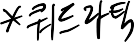 *쿼드라틱